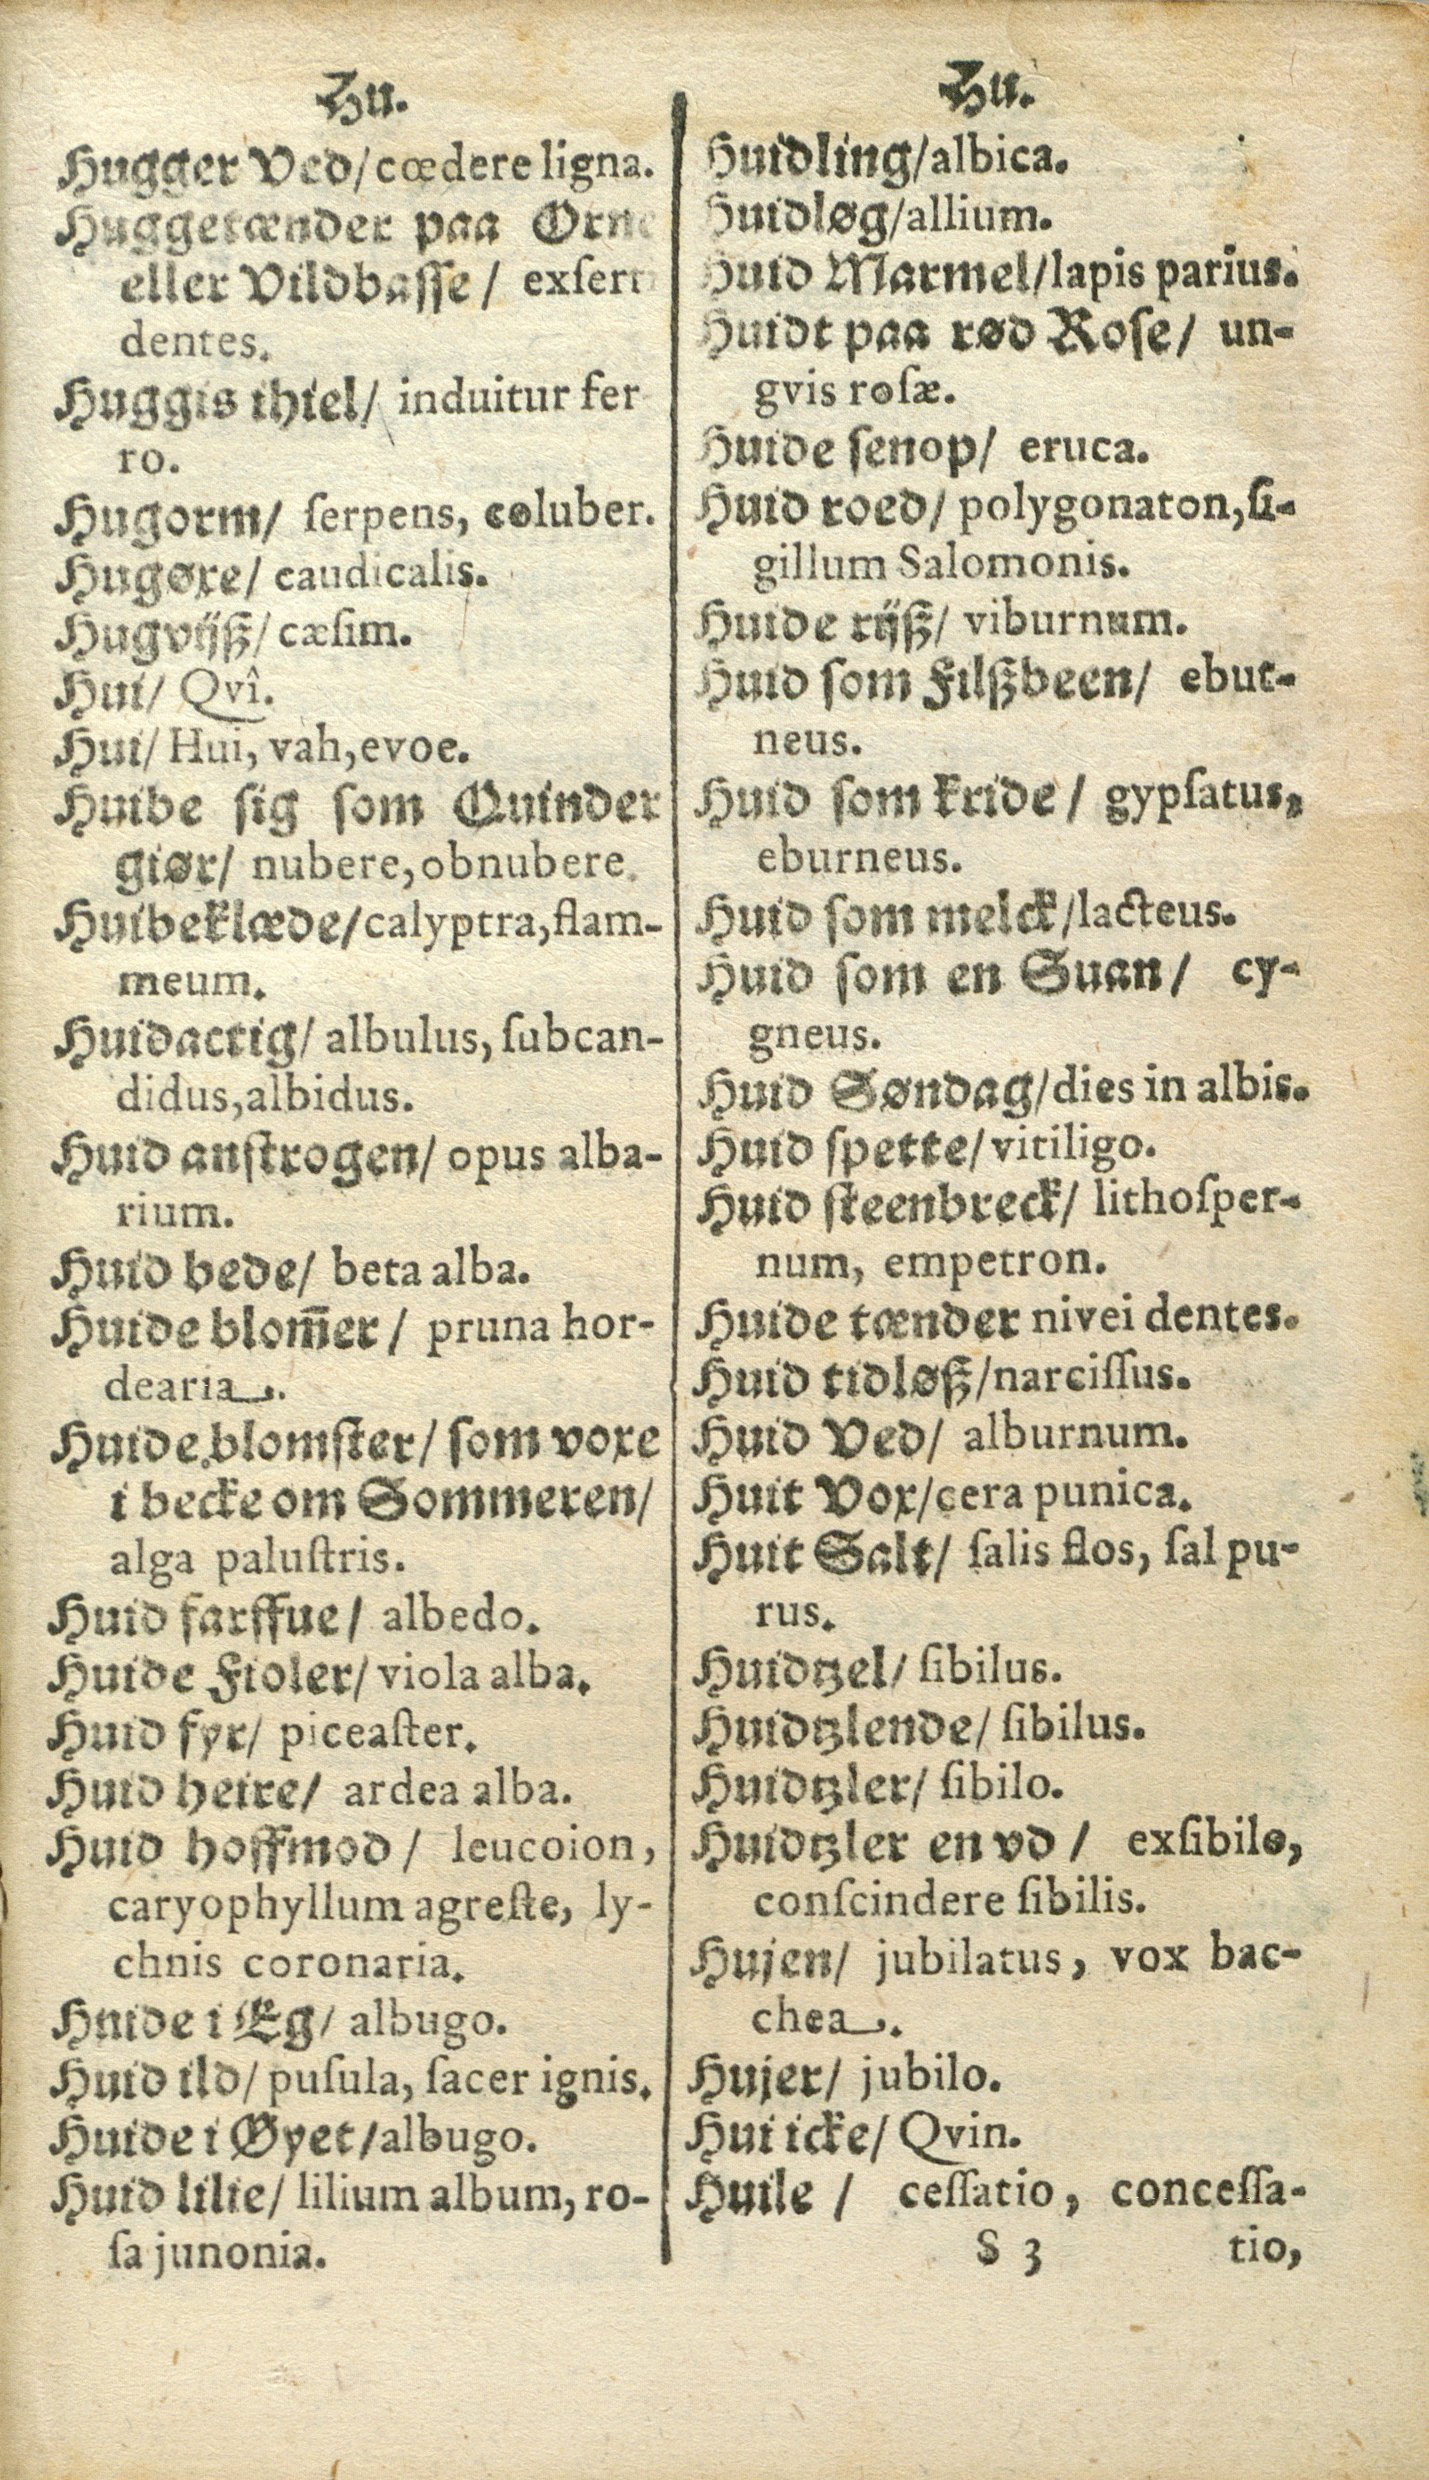 Hu.
Hugger Ved/ cœdere ligna.
Huggetænder paa Orne
eller Vildbasse/ exſerti
dentes.
Huggis ihiel/ induitur fer
ro.
Hugorm/ ſerpens, coluber.
Hugøxe/ caudicalis.
Hugvijß/ cæſim.
Hui/ Qvî.
Hui/ Hui, vah, evoe.
Huibe ſig ſom Quinder
giør/ nubere, obnubere.
Huibeklæde/ calyptra, flam-
meum.
Huidactig/ albulus, ſubcan-
didus, albidus.
Huid anſtrogen/ opus alba-
rium.
Huid bede/ beta alba.
Huide blom̃er/ pruna hor-
dearia.
Huide blomſter/ ſom voxe
i becke om Sommeren/
alga paluſtris.
Huid farffue/ albedo.
Huide Fioler/ viola alba.
Huid fyr/ piceaſter.
Huid heire/ ardea alba.
Huid hoffmod/ leucoion,
caryophyllum agreſte, ly-
chnis coronaria.
Huide i Eg/ albugo.
Huid ild/ puſula, ſacer ignis.
Huide i Øyet/ albugo.
Huid lilie/ lilium album, ro-
ſa junonia.
Hu.
Huidling/ albica.
Huidløg/ allium.
Huid Marmel/ lapis parius.
Huidt paa rød Roſe/ un-
gvis roſæ.
Huide ſenop/ eruca.
Huid roed/ polygonaton, ſi-
gillum Salomonis.
Huide rijß/ viburnum.
Huid ſom Filßbeen/ ebut-
neus.
Huid ſom kride/ gypſatus,
eburneus.
Huid ſom melck/ lacteus.
Huid ſom en Suan/ cy-
gneus.
Huid Søndag/ dies in albis.
Huid ſpette/ vitiligo.
Huid ſteenbreck/ lithoſper-
num, empetron.
Huide tænder nivei dentes.
Huid tidløß/ narciſſus.
Huid Ved/ alburnum.
Huit Vox/ cera punica.
Huit Salt/ ſalis flos, ſal pu-
rus.
Huidtzel/ ſibilus.
Huidtzlende/ ſibilus.
Huidtzler/ ſibilo.
Huidtzler en vd/ exſibilo,
conſcindere ſibilis.
Hujen/ jubilatus, vox bac-
chea.
Hujer/ jubilo.
Hui icke/ Qvin.
Huile/ ceſſatio, conceſſa-
S 3 tio,